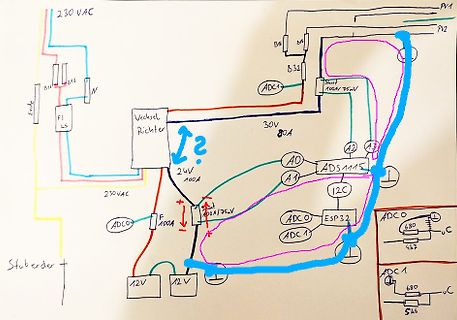 230 VAC
PV1
PV2
N
FI
LS
ADC1
Wechsel
Richter
30V
80A
100A/75mV
?
24V
100A
230VAC
A2
A3
A0
A1
ADS1115
I2C
ESP32
ADC0
ADC1
ADC0
F
100A
100A/75mV
+
+
12V
12V
ADC0
680
µC
ADC1
680
µC